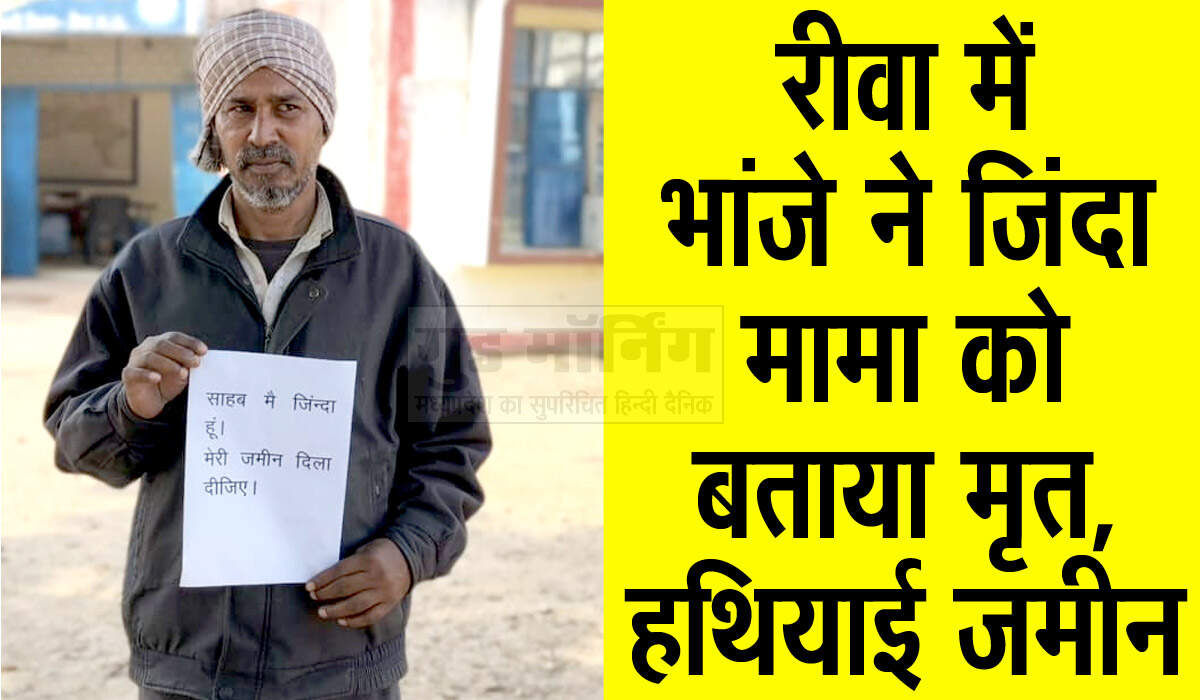 साहब मै जिंन्दा
हूं।
मेरी जमीन दिला
दीजिए।
गुड मॉर्निंग
मध्यप्रदेश का सुपरिचित हिन्दी दैनिक
रीवा में
भांजे ने जिंदा
मामा को
बताया मृत,
हथियाई जमीन